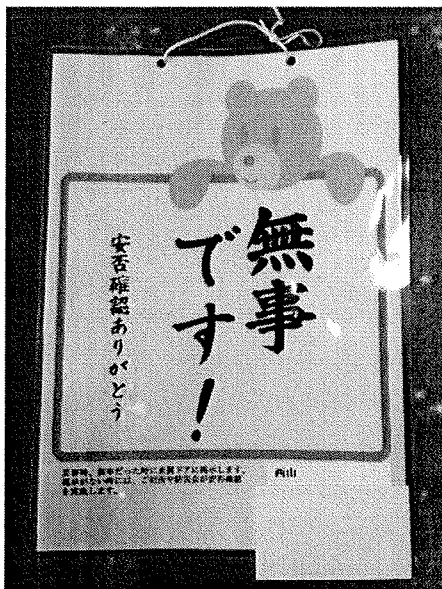 無事
です！
安否確認ありがとう
災害時、無事だった時に玄関ドアに掲示します。
掲示がない時には、ご近所や防災会が安否確認
を実施します。
西山